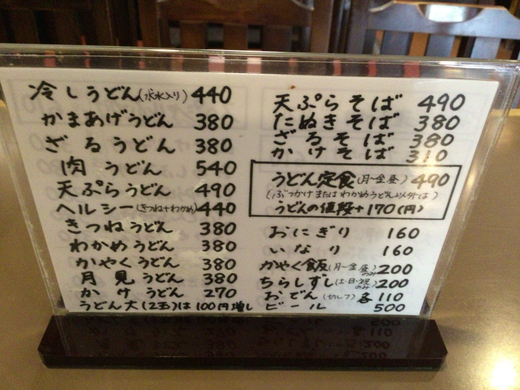 冷しうどん(氷水入り) 440
かまあげうどん 380
ざるうどん 380
肉うどん 540
天ぷらうどん 490
ヘルシー(きつね+わかめ) 440
きつねうどん 380
わかめうどん 380
かやくうどん 380
月見うどん 380
かけうどん 270
うどん大(2玉)は100円増し
天ぷらそば 490
たぬきそば 380
ざるそば 380
かけそば 310
うどん定食(月〜金昼) 490
(ぶっかけまたはわかめうどん以外は)
うどんの値段+170(円)
おにぎり 160
いなり 160
かやく飯(月〜金昼のみ) 200
ちらしずし(土・日・祝のみ) 200
おでん(セルフ)各110
ビール 500